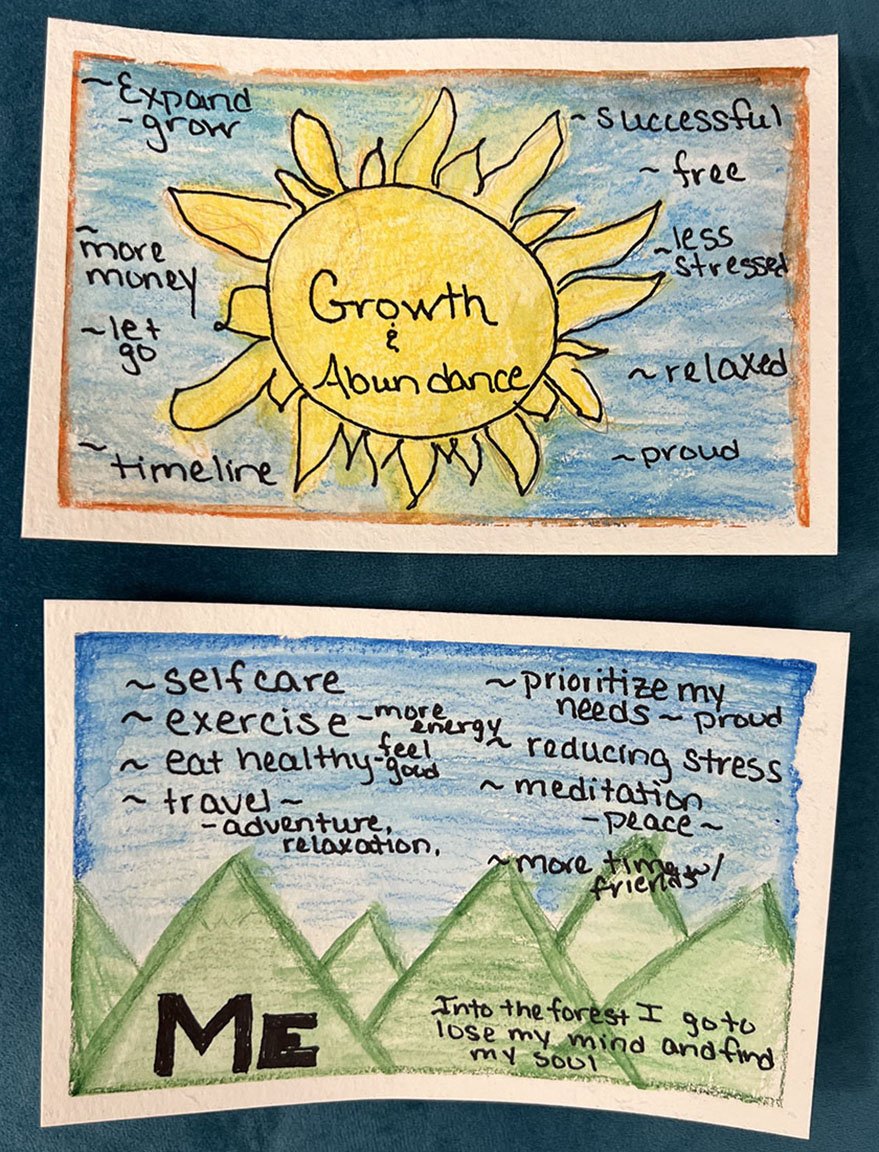 ~ Expand
- grow
~
more
money
~ let
go
~
timeline
Growth
&
Abundance
~ successful
~ free
~ less
stressed
~ relaxed
~ proud
~ selfcare
~ exercise - more
energy
~ eat healthy - feel
good
~ travel ~
- adventure,
relaxation.
~ prioritize my
needs ~ proud
~ reducing stress
~ meditation
- peace ~
~ more time w/
friends
ME
Into the forest I go to
lose my mind and find
my soul